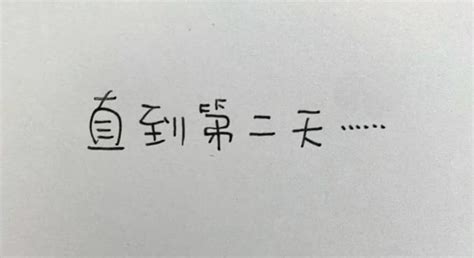 直到第二天……